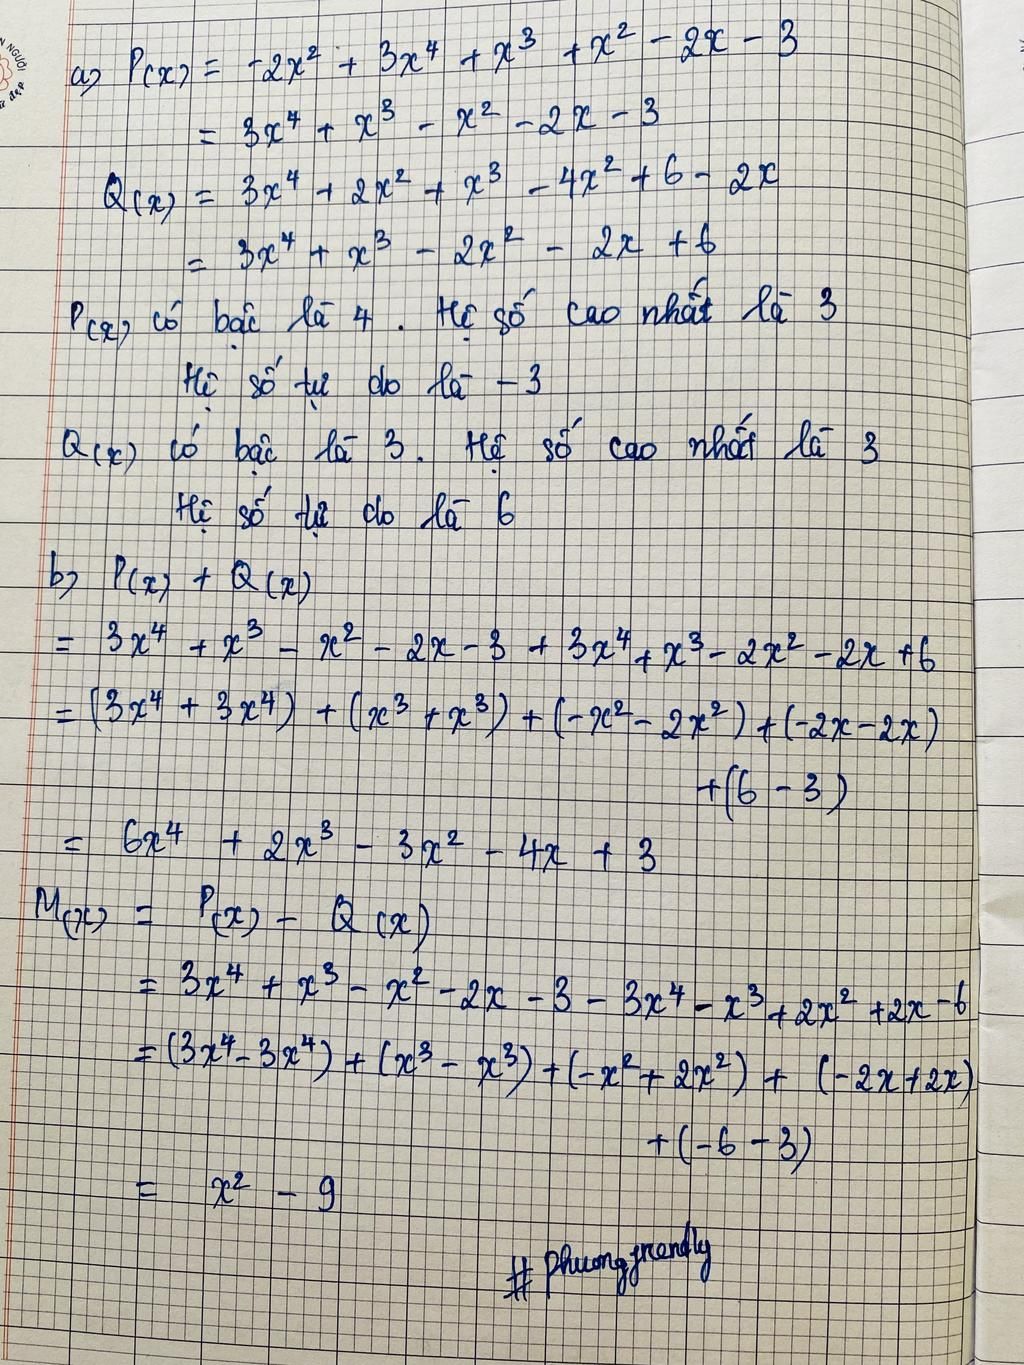 a) P(x) = -2x² + 3x⁴ + x³ + x² - 2x - 3
= 3x⁴ + x³ - x² - 2x - 3
Q(x) = 3x⁴ + 2x² + x³ - 4x² + 6 - 2x
= 3x⁴ + x³ - 2x² - 2x + 6
P(x) có bậc là 4. Hệ số cao nhất là 3
Hệ số tự do là -3
Q(x) có bậc là 3. Hệ số cao nhất là 3
Hệ số tự do là 6
b) P(x) + Q(x)
= 3x⁴ + x³ - x² - 2x - 3 + 3x⁴ + x³ - 2x² - 2x + 6
= (3x⁴ + 3x⁴) + (x³ + x³) + (-x² - 2x²) + (-2x - 2x)
+ (6 - 3)
= 6x⁴ + 2x³ - 3x² - 4x + 3
M(x) = P(x) - Q(x)
= 3x⁴ + x³ - x² - 2x - 3 - 3x⁴ - x³ + 2x² + 2x - 6
= (3x⁴ - 3x⁴) + (x³ - x³) + (-x² + 2x²) + (-2x + 2x)
+ (-6 - 3)
= x² - 9
# phuongfriendly